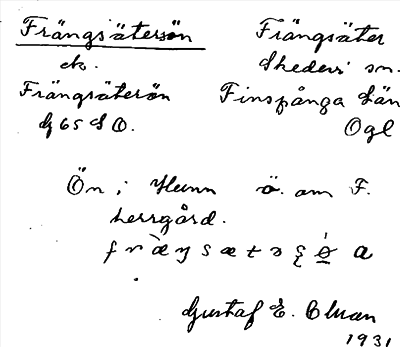 Frängsätersön Frängsäter
ek. Skedevi sn.
Frängsäterön Finspånga Län
G 65 S O. Ögl
Ön i Hunn ö. om F.
herrgård.
Gustaf E. Bluan
1931